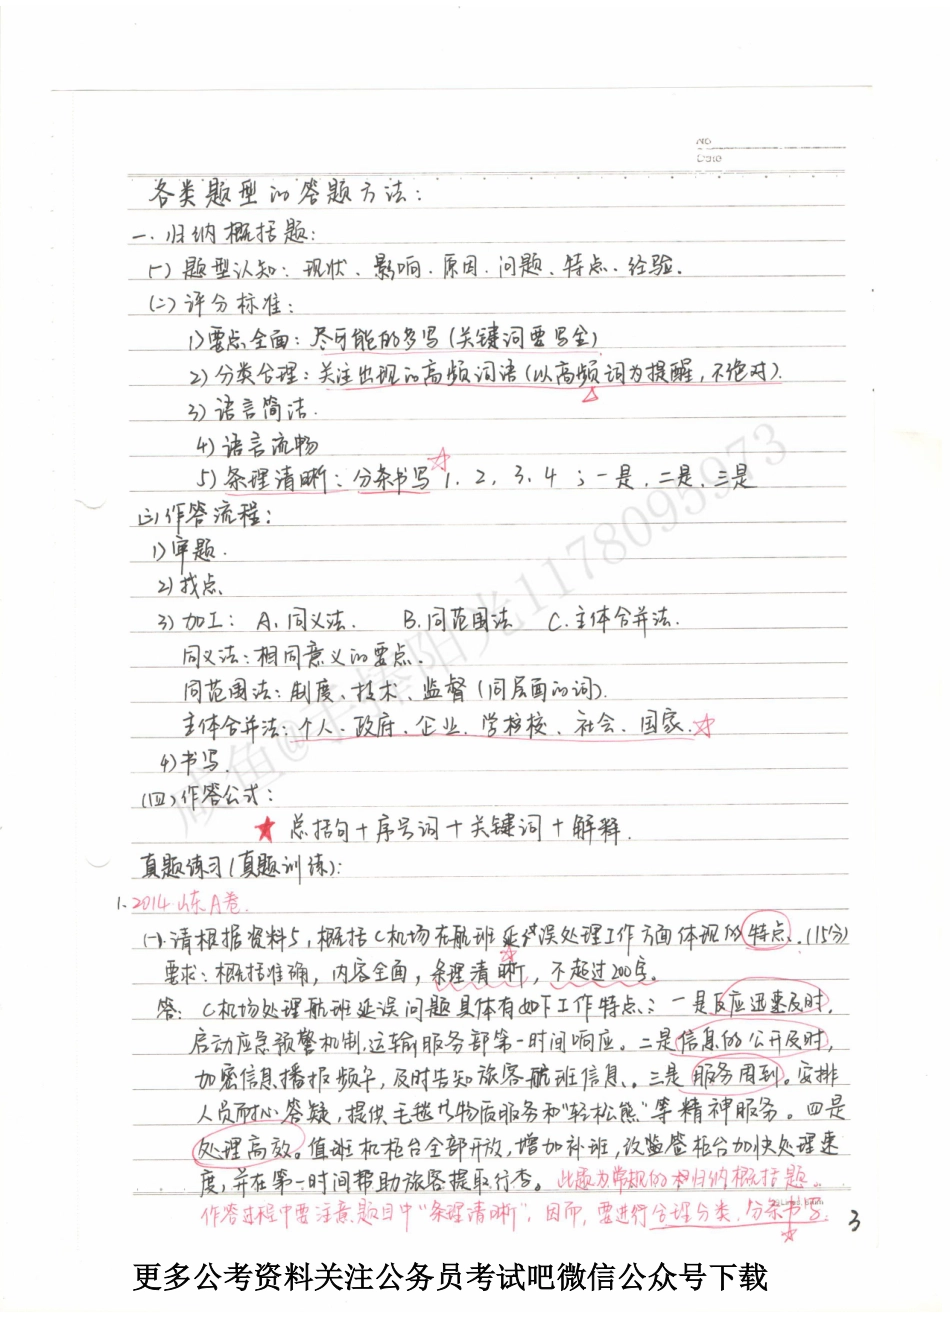 No
Date
各类题型的答题方法:
一.归纳概括题:
(一)题型认知:现状、影响.原因.问题、特点、经验.
(二)评分标准:
1)要点全面:尽可能的多写(关键词要写全)
2)分类合理:关注出现的高频词语(以高频词为提醒,不绝对).
3)语言简洁.
4)语言流畅
5)条理清晰:分条书写1.2,3.4;一是,二是,三是
(三)作答流程:
1)审题.
2)找点.
3)加工:A.同义法. B.同范围法 C.主体合并法.
同义法:相同意义的要点.
同范围法:制度、技术、监督(同层面的词).
主体合并法:个人、政府、企业、学校、社会、国家.
4)书写.
(四)作答公式:
总括句+序号词+关键词+解释.
真题练习(真题训练):
1.2014山东A卷.
(一)请根据资料5,概括C机场在航班延误处理工作方面体现的特点.(15分)
要求:概括准确,内容全面,条理清晰,不超过200字.
答:C机场处理航班延误问题具体有如下工作特点:一是反应迅速及时,
启动应急预警机制,运输服务部第一时间响应。二是信息的公开及时,
加密信息播报频率,及时告知旅客航班信息。三是服务周到。安排
人员耐心答疑,提供毛毯等物质服务和"轻松熊"等精神服务。四是
处理高效。值班机柜台全部开放,增加补班,改签柜台加快处理速
度,并在第一时间帮助旅客提取行李。此题为常规的归纳概括题。
作答过程中要注意题目中"条理清晰",因而,要进行合理分类,分条书写.
3
咸鱼@手捧阳光1178095973
更多公考资料关注公务员考试吧微信公众号下载